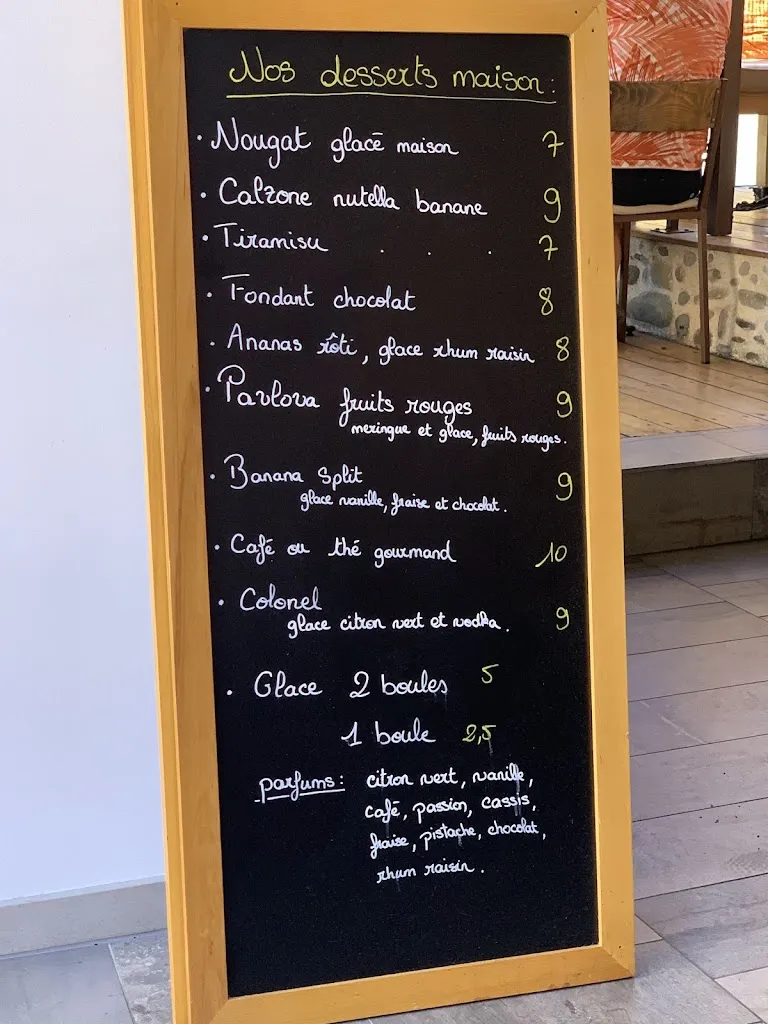 Nos desserts maison :
• Nougat glacé maison 7
• Calzone nutella banane 9
• Tiramisu . . . 7
• Fondant chocolat 8
• Ananas rôti, glace rhum raisin 8
• Pavlova fruits rouges 9
meringue et glace, fruits rouges.
• Banana Split 9
glace vanille, fraise et chocolat.
• Café ou thé gourmand 10
• Colonel 9
glace citron vert et vodka.
• Glace 2 boules 5
1 boule 2,5
parfums : citron vert, vanille,
café, passion, cassis,
fraise, pistache, chocolat,
rhum raisin.